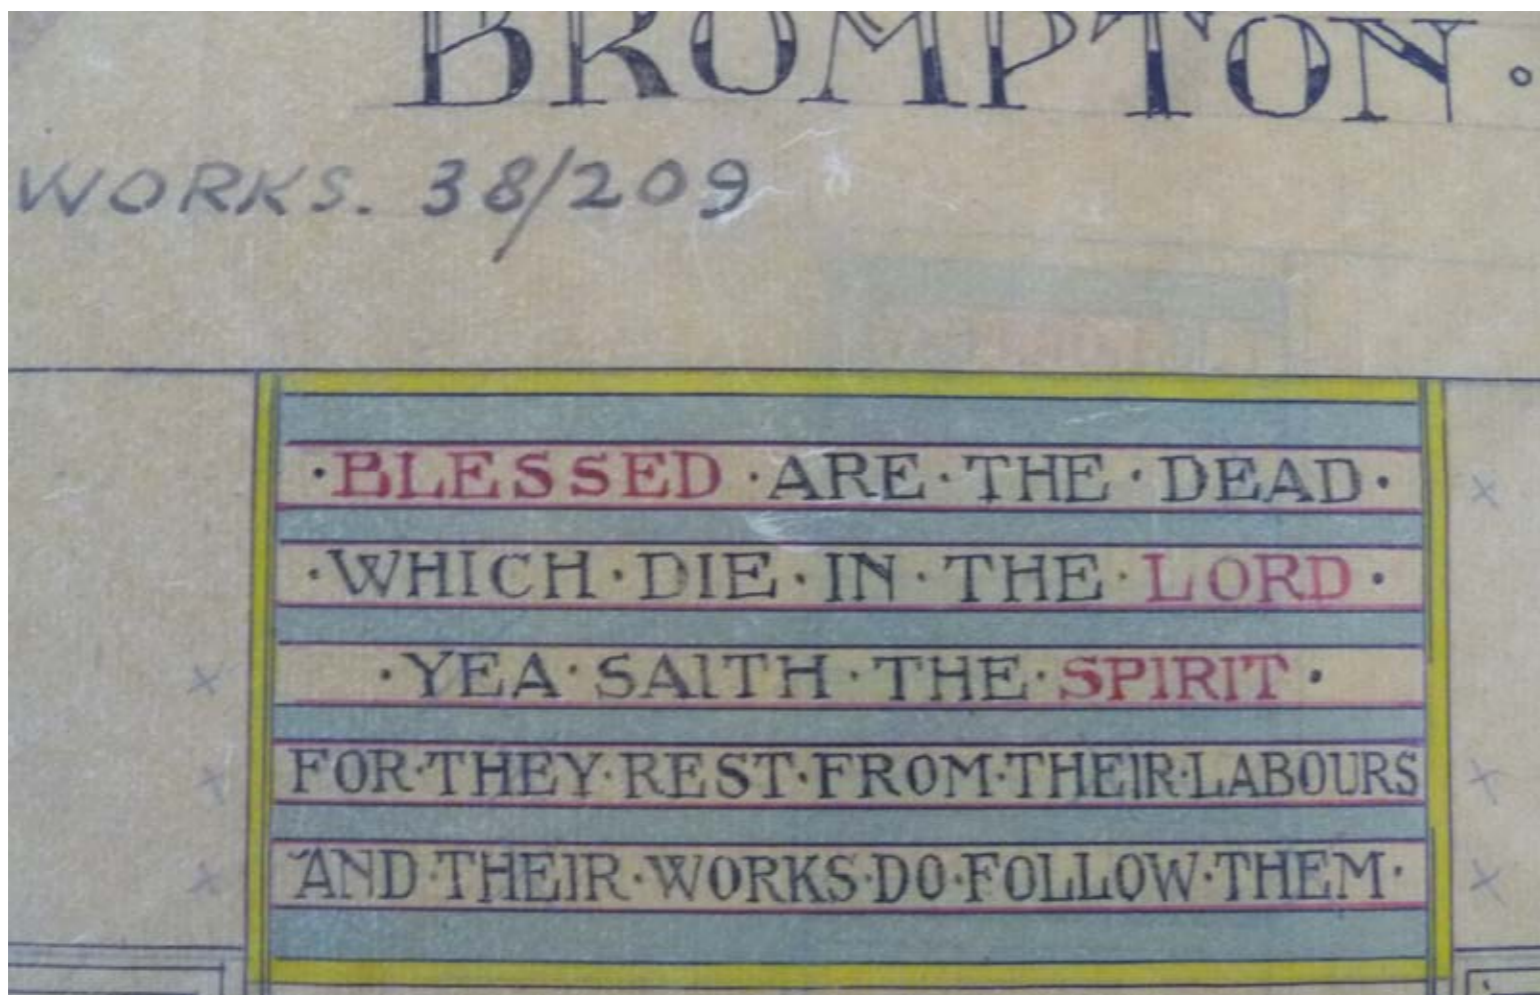 BROMPTON ·
WORKS. 38/209
· BLESSED · ARE · THE · DEAD ·
· WHICH · DIE · IN · THE · LORD ·
· YEA · SAITH · THE · SPIRIT ·
FOR · THEY · REST · FROM · THEIR · LABOURS
AND · THEIR · WORKS · DO · FOLLOW · THEM ·